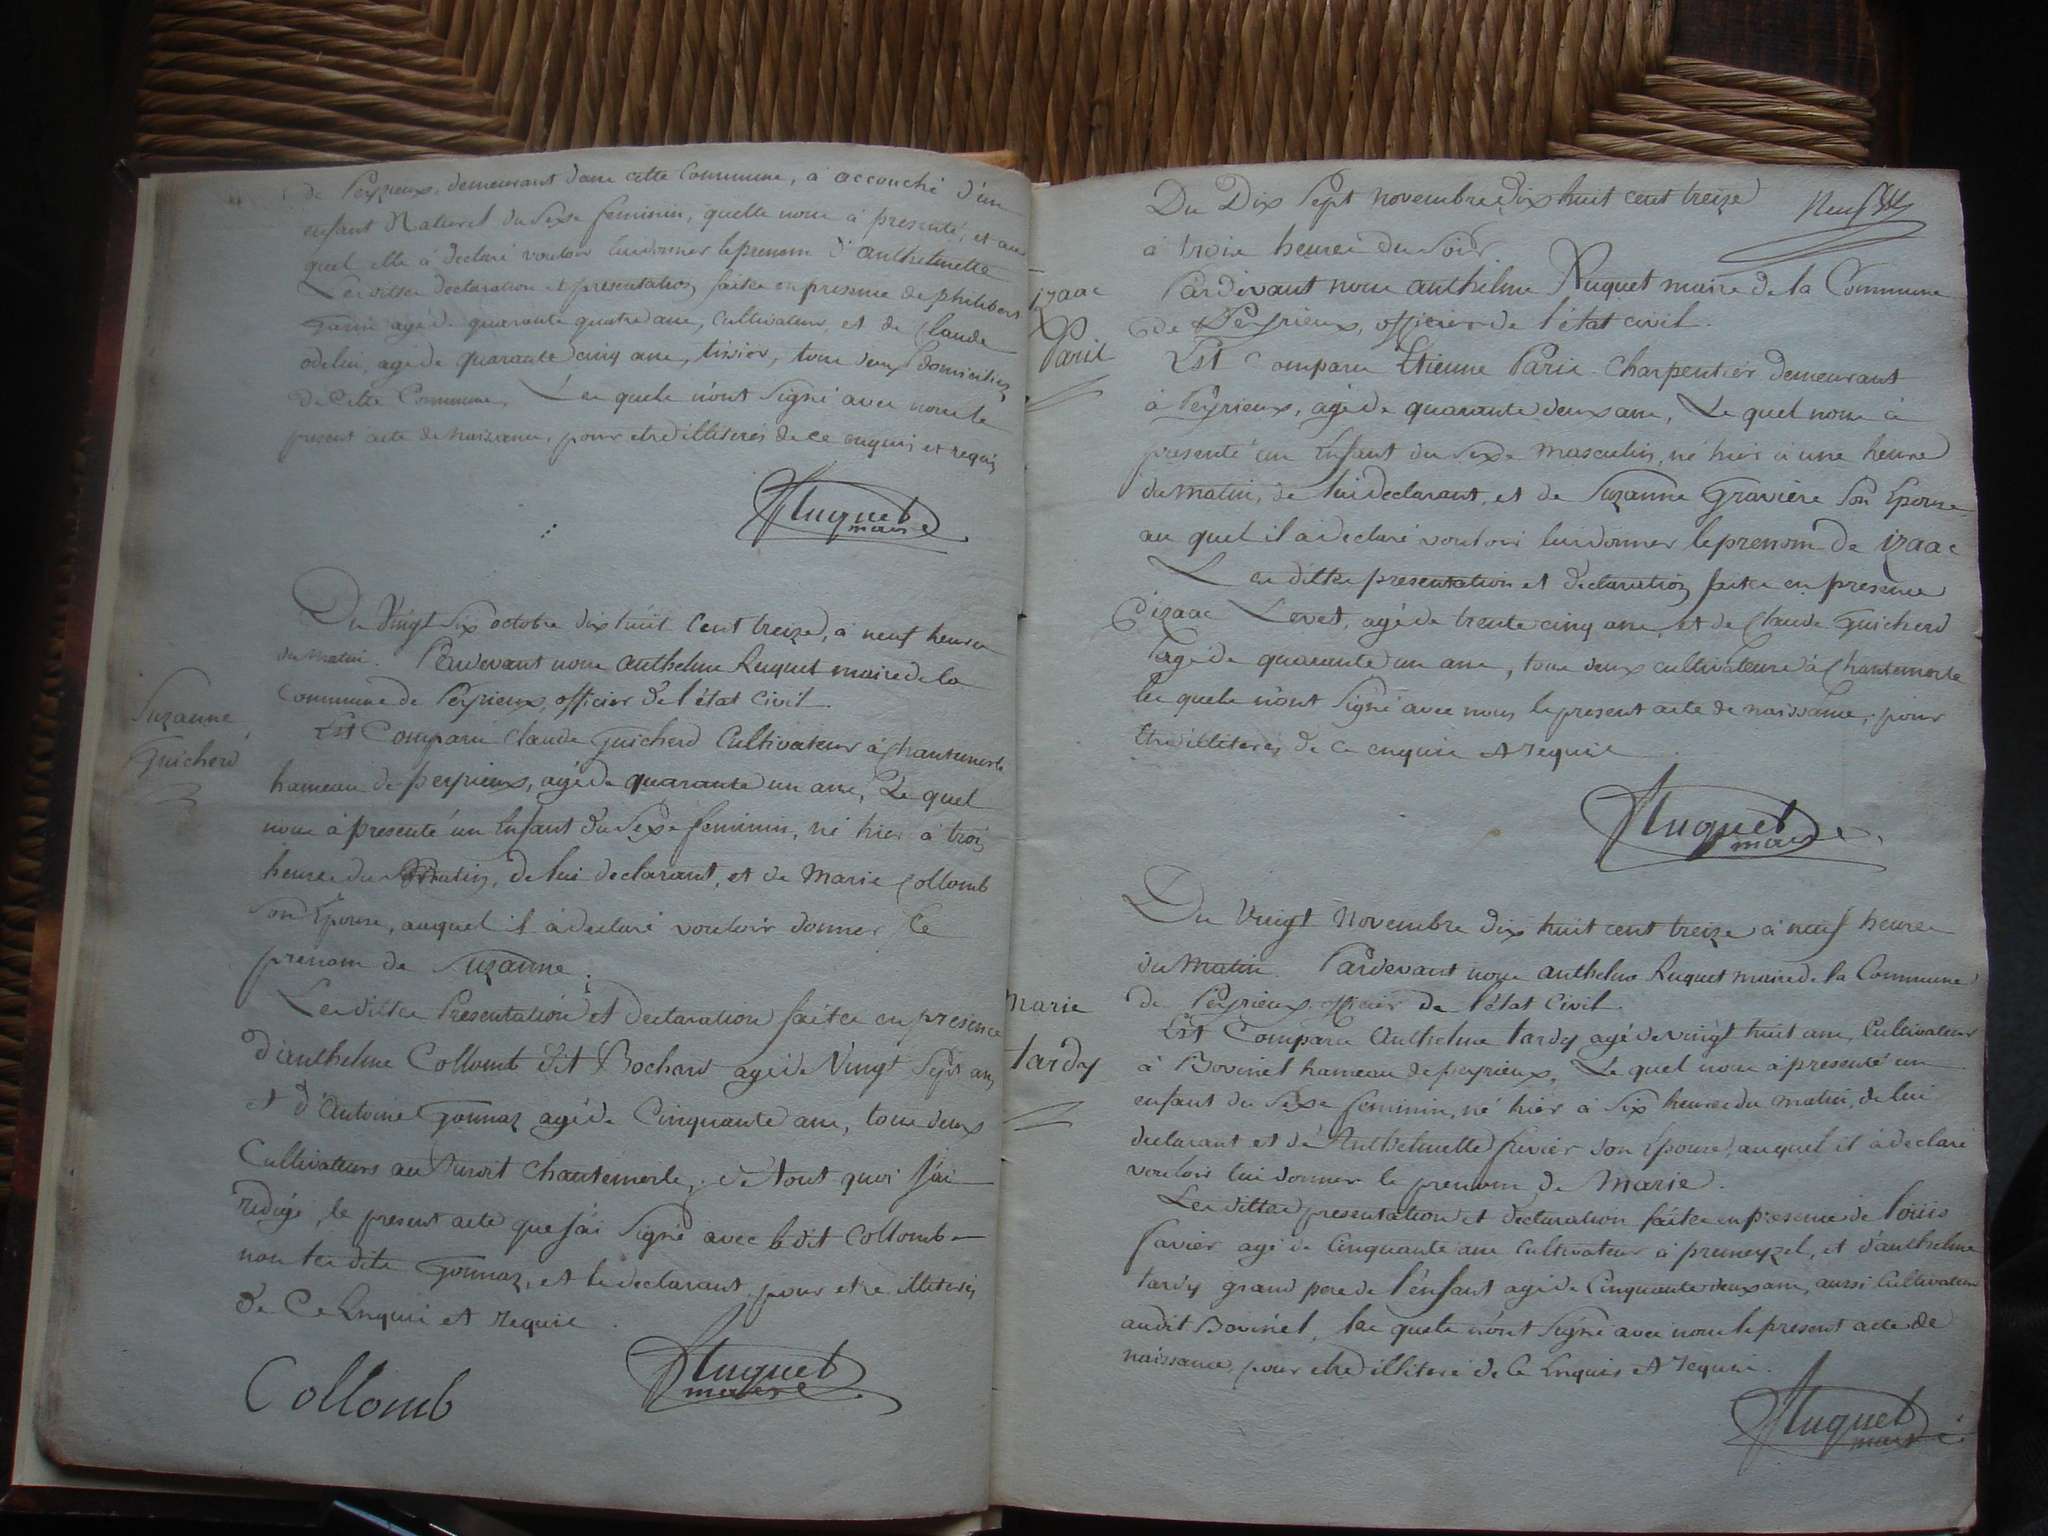 de Peyrieux, demeurant dans cette Commune, à accouché d'un
enfant Naturel du Sexe feminin, quelle nous à presenté, et au
quel elle à declaré vouloir lui donner le prenom d'anthelmette
Les dittes declaration et presentation faites en presence de philibert
agé de quarante quatre ans, cultivateur, et de Claude
odelin, agé de quarante cinq ans, tissier, tous deux domiciliés
de cette Commune, Les quels n'ont Signé avec nous le
present acte de naissance, pour etre illiterés de ce enquis et requis
Ruquet
maire
Suzanne
Guicherd
Du Vingt Six octobre dix huit Cent treize, à neuf heures
du matin. Pardevant nous anthelme Ruquet maire de la
Commune de Peyrieux, officier de l'état civil.
Est Comparu Claude Guicherd Cultivateur à Chantemerle
hameau de peyrieux, agé de quarante un ans, Le quel
nous à presenté un Enfant du Sexe feminin, né hier à trois
heures du Matin, de lui declarant, et de Marie Collomb
Son Epouse, auquel il à declaré vouloir donner le
prenom de Suzanne.
Les dittes Presentation et declaration faites en presence
d'anthelme Collomb dit Bochard agé de Vingt Sept ans
et d'Antoine Gonnaz agé de Cinquante ans, tous deux
Cultivateurs au Chantemerle, de tout quoi j'ai
redigé, le present acte que j'ai Signé avec le dit Collomb
non le dit Gonnaz, et le declarant pour etre illiterés
de Ce Enquis et requis.
Collomb
Ruquet
maire
Du Dix Sept novembre dix huit cent treize
à trois heures du Soir
izaac
Paris
Pardevant nous anthelme Ruquet maire de la Commune
de Peyrieux, officier de l'état civil.
Est Comparu Etienne Paris Charpentier demeurant
à Peyrieux, agé de quarante deux ans, Le quel nous à
presenté un Enfant du Sexe Masculin, né hier à une heure
du Matin, de lui declarant, et de Suzanne Gravière Son Epouse
au quel il à declaré vouloir lui donner le prenom de izaac
Les dittes presentation et declaration faites en presence
d'izaac Levet, agé de trente cinq ans, et de Claude Guicherd
agé de quarante un ans, tous deux cultivateurs à Chantemerle
les quels n'ont Signé avec nous le present acte de naissance, pour
Etre illiterés de ce enquis et requis
Ruquet
maire
Marie
tardy
Du Vingt Novembre dix huit cent treize à neuf heures
du Matin. Pardevant nous anthelme Ruquet maire de la Commune
de Peyrieux officier de l'état Civil.
Est Comparu Anthelme tardy agé de vingt huit ans, Cultivateur
à Bovinel hameau de peyrieux, Le quel nous à presenté un
enfant du Sexe feminin, né hier à Six heures du matin, de lui
declarant et de Anthelmette favier Son Epouse, auquel il à declaré
vouloir lui donner le prenom de Marie.
Les dittes presentation et declaration faites en presence de louis
favier agé de Cinquante ans Cultivateur à pruneyzel, et d'anthelme
tardy grand pere de l'enfant agé de Cinquante deux ans, aussi Cultivateur
audit Bovinel, les quels n'ont Signé avec nous le present acte de
naissance pour etre illiteré de Ce Enquis et requis.
Ruquet
maire